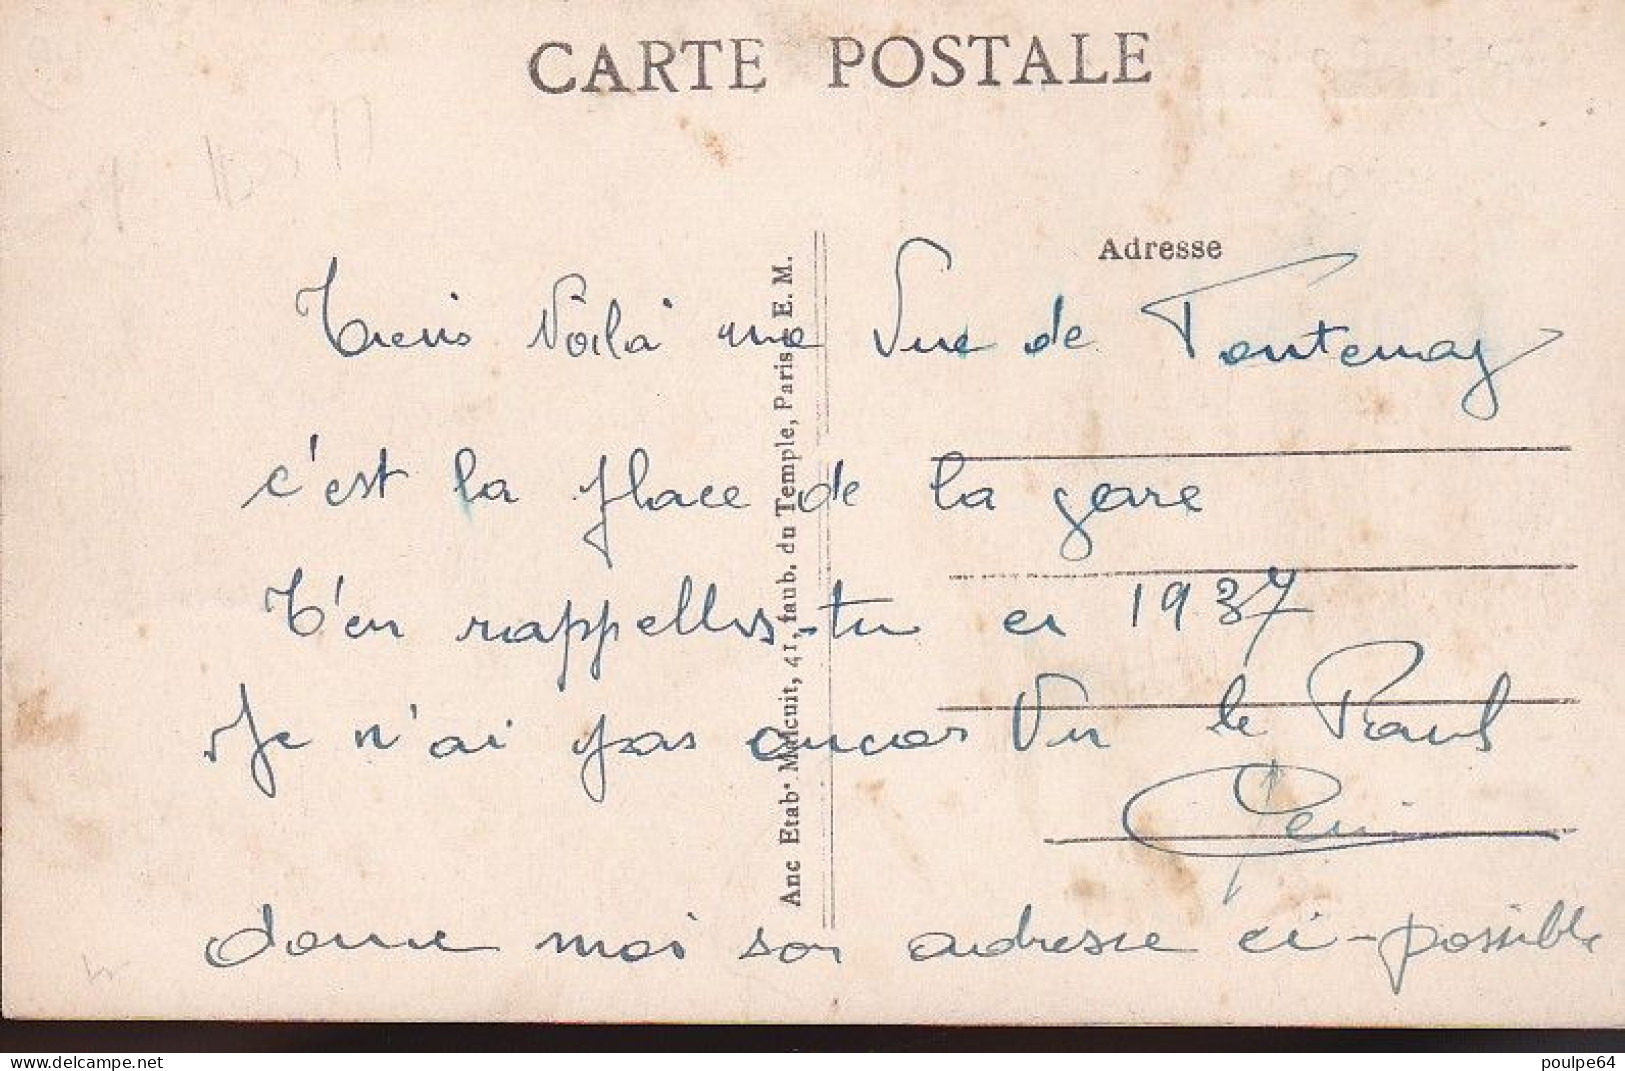 CARTE POSTALE
Adresse
Anc Etabts Malcuit, 41, faub. du Temple, Paris E. M.
Tiens Voilà une Vue de Fontenay
c'est la place de la gare
T'en rappelles-tu en 1937
Je n'ai pas encore Vu le Paul
donne moi son adresse ci-possible
poulpe64